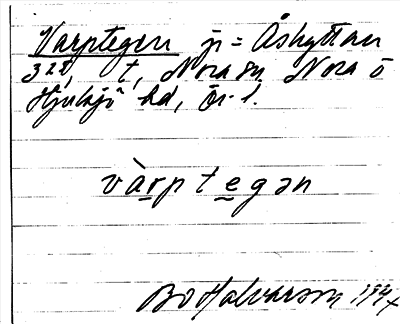 Varptegen p = Åshyttan
328, t, Nora sn Nora o
Hjulsjö bd, Ör. l.
vàrptegən
Bo Halvarson 1994